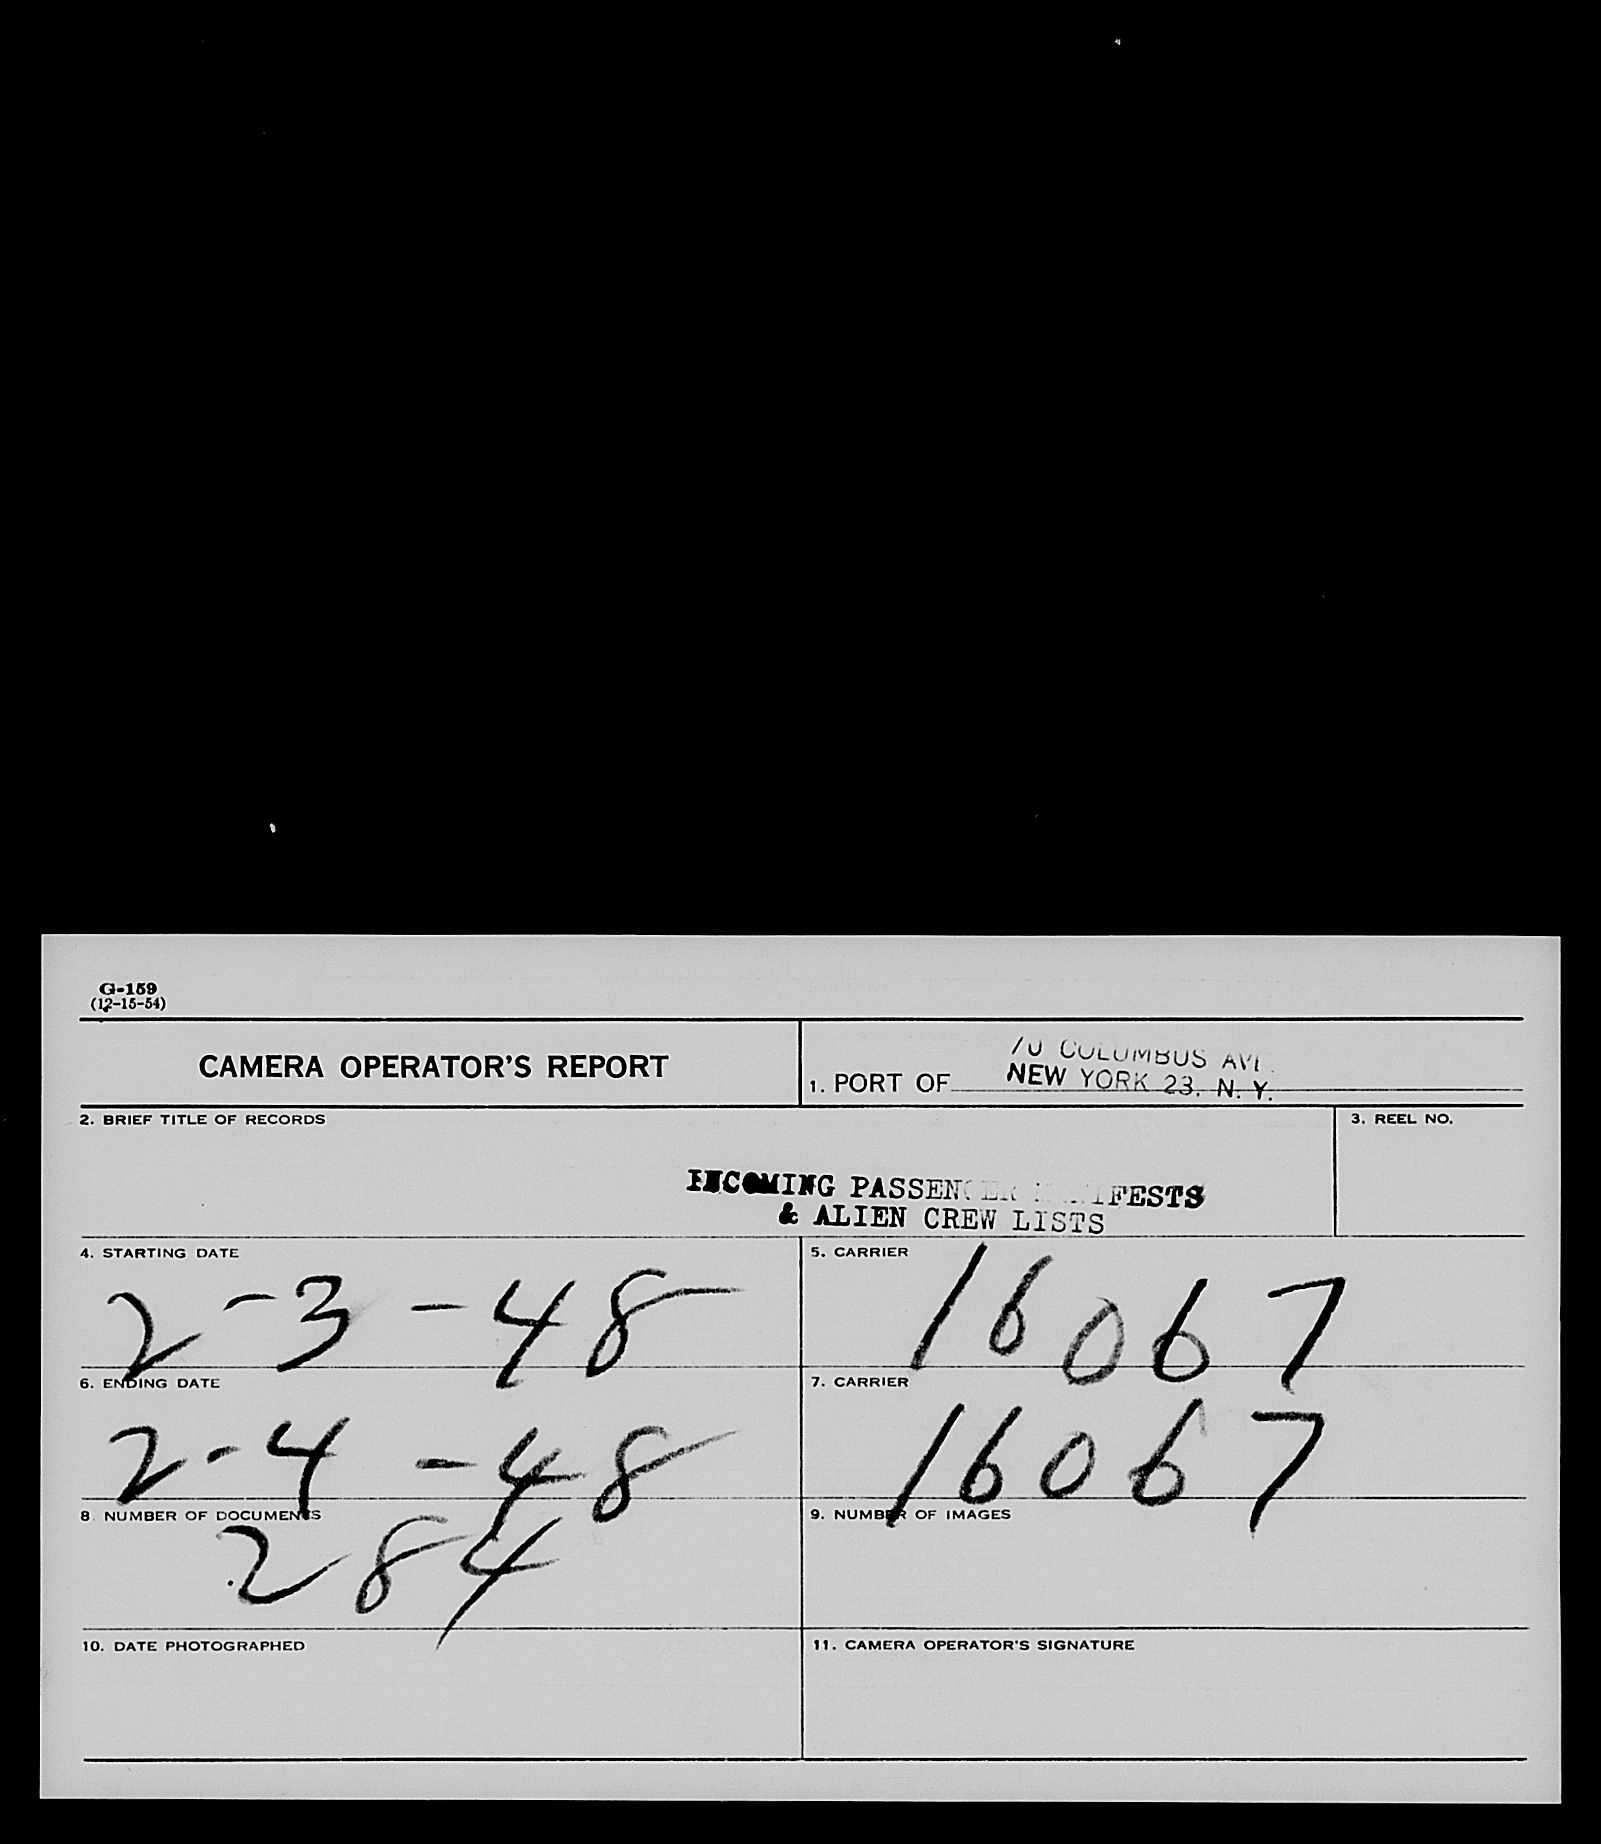 G-159
(12-15-54)
CAMERA OPERATOR'S REPORT
70 COLUMBUS AVE.
1. PORT OF NEW YORK 23, N. Y.
2. BRIEF TITLE OF RECORDS
3. REEL NO.
INCOMING PASSENGER MANIFESTS
& ALIEN CREW LISTS
4. STARTING DATE
2-3-48
5. CARRIER
16067
6. ENDING DATE
2-4-48
7. CARRIER
16067
8. NUMBER OF DOCUMENTS
284
9. NUMBER OF IMAGES
10. DATE PHOTOGRAPHED
11. CAMERA OPERATOR'S SIGNATURE